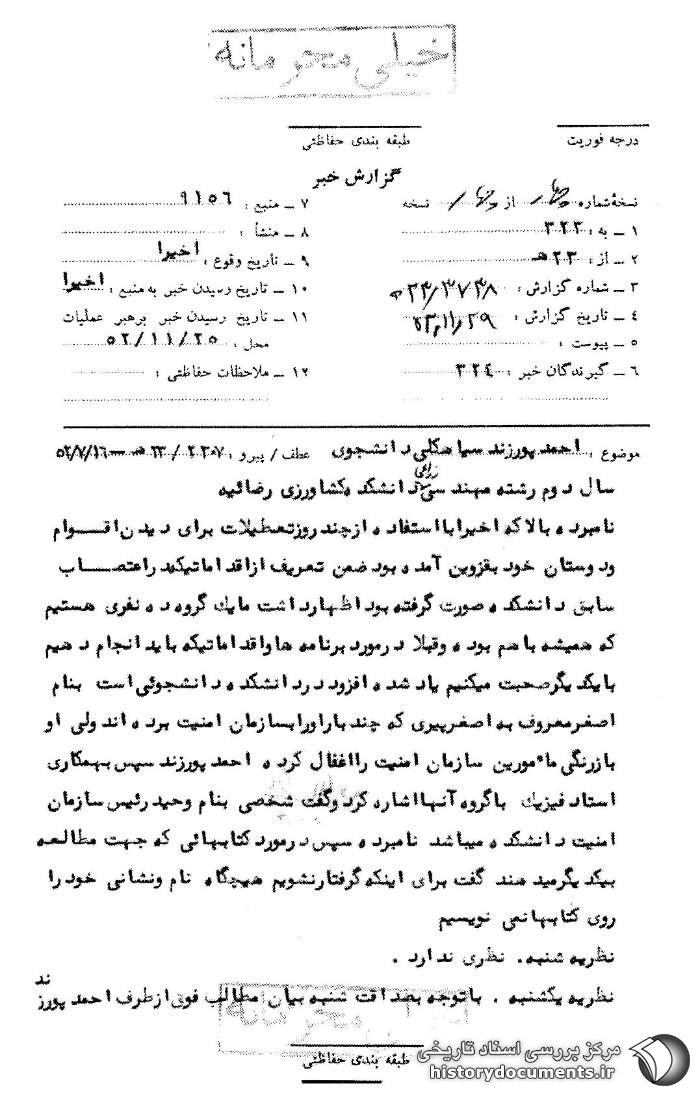 خیلی محرمانه
درجه فوریت
طبقه بندی حفاظتی
گزارش خبر
نسخهٔ شماره چهار از چهار نسخه
۱ ــ به : ۳۲۳
۲ ــ از : ۲۳ هـ
۳ ــ شماره گزارش : ۲۳/۳۷۳۸ هـ
۴ ــ تاریخ گزارش : ۵۳,۱۱,۲۹
۵ ــ پیوست :
۶ ــ گیرندگان خبر : ۳۲۴
۷ ــ منبع : ۹۱۵۶
۸ ــ منشأ :
۹ ــ تاریخ وقوع : اخیرا
۱۰ ــ تاریخ رسیدن خبر به منبع : اخیرا
۱۱ ــ تاریخ رسیدن خبر برهبر عملیات
محل : ۵۲/۱۱/۲۵
۱۲ ــ ملاحظات حفاظتی :
موضوع : احمد پورزند سیاهکلی دانشجوی عطف / پیرو :
سال دوم رشته مهندسی زراعی دانشکده کشاورزی رضائیه
نامبرده بالا که اخیرا با استفاده از چند روز تعطیلات برای دیدن اقوام
ودوستان خود بقزوین آمده بود ضمن تعریف از اقداماتیکه در اعتصاب
سابق دانشکده صورت گرفته بود اظهارداشت ما یك گروه ده نفری هستیم
که همیشه با هم بوده وقبلا درمورد برنامه ها واقداماتیکه باید انجام دهیم
با یکدیگر صحبت میکنیم یاد شده افزود در دانشکده دانشجوئی است بنام
اصغر معروف به اصغر پیری که چند بار اورا بسازمان امنیت برده اند ولی او
با زرنگی مأمورین سازمان امنیت را اغفال کرده احمد پورزند سپس بهمکاری
استاد فیزیك با گروه آنها اشاره کرد وگفت شخصی بنام وحید رئیس سازمان
امنیت دانشکده میباشد نامبرده سپس درمورد کتابهائی که جهت مطالعه
بیکدیگر میدهند گفت برای اینکه گرفتار نشویم هیچگاه نام ونشانی خود را
روی کتابها نمی نویسیم
نظریه شنبه. نظری ندارد .
نظریه یکشنبه . با توجه بصداقت شنبه بیان مطالب فوق از طرف احمد پورزند
خیلی محرمانه
طبقه بندی حفاظتی
مرکز بررسی اسناد تاریخی
historydocuments.ir